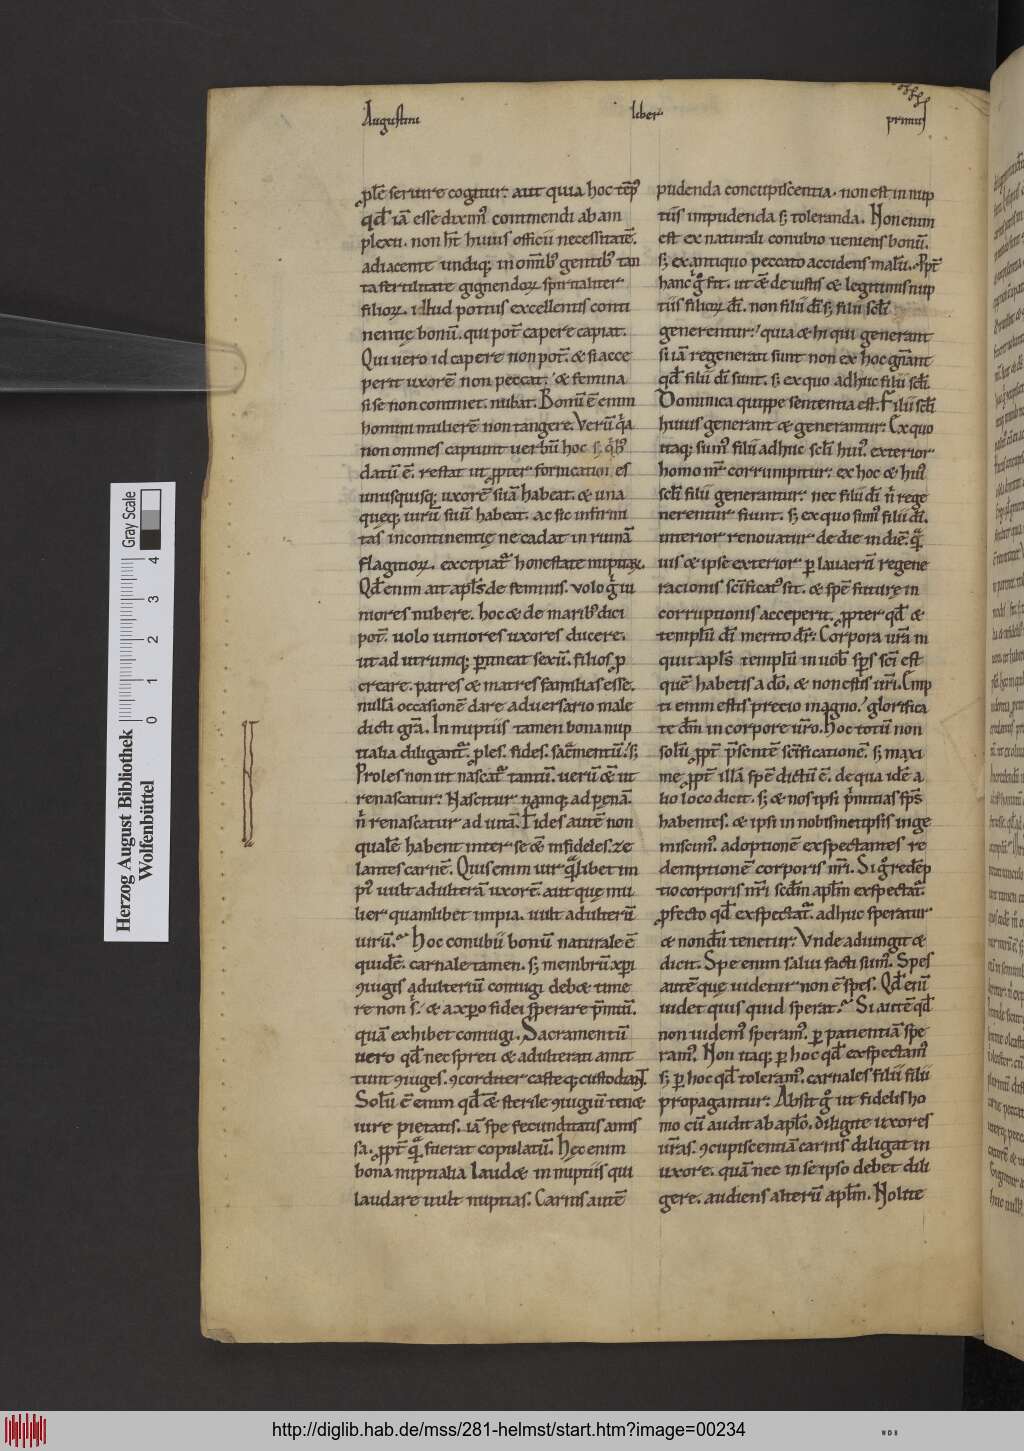 Augustini liber primus
ꝓlē seruire cogitur. aut quia hoc tēpꝰ
qđ iā esse diximꝰ continendi ab am
plexu. non ht̄ huius officii necessitatē.
adiacente undiqꝫ in om̄ibꝰ gentibꝰ tan
ta fertilitate gignendoꝝ spiritaliter
filioꝝ. illud potius excellentis conti
nentię bonū. qui pot̄ capere capiat.
Qui uero id capere non pot̄. & si acce
perit uxorē non peccat. & femina
si se non continet. nubat. Bonū ē enim
homini mulierē non tangere. Verū qͥa
non omnes capiunt uerbū hoc sꝫ qͥbꝰ
datū ē. restat ut ꝓpter fornication es
unusquisqꝫ uxorē suā habeat. & una
quęqꝫ uirū suū habeat. ac sic infirmi
tas incontinentię ne cadat in ruinā
flagitioꝝ. excipiat᷑ honestate nuptiaꝝ.
Qđ enim ait apl̄s de feminis. uolo gͥ iu
niores nubere. hoc & de maribꝰ dici
pot̄. uolo iuniores uxores ducere.
ut ad utrumqꝫ ꝑtineat sexū. filios ꝓ
creare. patres & matres familias esse.
nullā occasionē dare aduersario male
dicti gr̄a. In nuptiis tamen bona nup
tialia diligant᷑. ples. fides. sac̄mentū. sꝫ
Proles non ut nascat᷑ tantū. uerū &̄ ut
renascatur. Nascitur namqꝫ ad pęnā.
n̄ renascatur ad uitā. Fides autē non
qualē habent inter se &̄ infideles. ze
lantes carnē. Quis enim uir qͣlibet im
piꝰ uult adulterā uxorē. aut quę mu
lier quamlibet impia. uult adulterū
uirū. Hoc conubii bonū naturale ē
quidē. carnale tamen. sꝫ membrū xp̄i
ꝯiugis adulteriū coniugi deb& time
re non s̄. & a xp̄o fidei sperare p̄miū.
quā exhibet coniugi. Sacramentū
uero qđ nec spreti & adulterati amit
tunt ꝯiuges. ꝯcorditer casteqꝫ custodianT
Solū ē enim qđ &̄ sterile ꝯiugiū ten&
iure pietatis. iā spe fecunditatis amis
sa. ꝓpt̄ qͣ fuerat copulatū. Hęc enim
bona nuptialia laud& in nuptiis qui
laudare uult nuptias. Carnis autē
pudenda concupiscentia. non est in nup
tiis impudenda sꝫ toleranda. Non enim
est ex naturali conubio ueniens bonū.
sꝫ ex antiquo peccato accidens malū. Ꝓpt̄
hanc gͦ fit. ut &̄ de iustis & legitimis nup
tiis filioꝝ dī. non filii dī sꝫ filii scl̄i
generentur. quia & hi qui generant
si iā regenerati sunt non ex hoc gn̄ant
qđ filii dī sunt. sꝫ ex quo adhuc filii scl̄i.
Dominica quippe sententia est. Filii scl̄i
huius generant & generantur. Ex quo
itaqꝫ sumꝰ filii adhuc scl̄i huiꝰ. exterior
homo nr̄ corrumpitur. ex hoc & huiꝰ
scl̄i filii generantur. nec filii dī nͥ rege
nerentur fiunt. sꝫ ex quo sumꝰ filii dī.
interior renouatur de die in diē. qͣ
uis & ipse exterior ꝑ lauacrū regene
racionis scīficatꝰ sit. & spē futurę in
corruptionis acceperit. ꝓpter qđ &
templū dī merito dr̄. Corpora ur̄a in
quit apl̄s templū in uob̄ sp̄s scī est
quē habetis a dō. & non estis ur̄i. Emp
ti enim estis precio magno. glorifica
te dm̄ in corpore ur̄o. Hoc totū non
solū ꝓpt̄ p̄sentē scīficationē. sꝫ maxi
me ꝓpt̄ illā spē dictū ē. de qua idē a
lio loco dicit. sꝫ & nos ipsi pͥmitias sp̄s
habentes. & ipsi in nobismetipsis inge
miscimꝰ. adoptionē exspectantes re
demptionē corporis nr̄i. Si gͦ redēp
tio corporis nr̄i scd̄m apl̄m exspectat᷑.
ꝓfecto qđ exspectat᷑. adhuc speratur
& nondū tenetur. Vnde adiungit &
dicit. Spe enim salui facti sumꝰ. Spes
autē quę uidetur non ē spes. Qđ enī
uidet quis quid sperat. Si autē qđ
non uidemꝰ speramꝰ. ꝑ patientiā spe
ramꝰ. Non itaqꝫ ꝑ hoc qđ exspectamꝰ
sꝫ ꝑ hoc qđ toleramꝰ. carnales filii filii
propagantur. Absit gͦ ut fidelis ho
mo cū audit ab apl̄o. diligite uxores
ur̄as. ꝯcupiscentiā carnis diligat in
uxore. quā nec in se ipso debet dili
gere. audiens alterū apl̄m. Nolite
Herzog August Bibliothek
Wolfenbüttel
Gray Scale
0 1 2 3 4
http://diglib.hab.de/mss/281-helmst/start.htm?image=00234